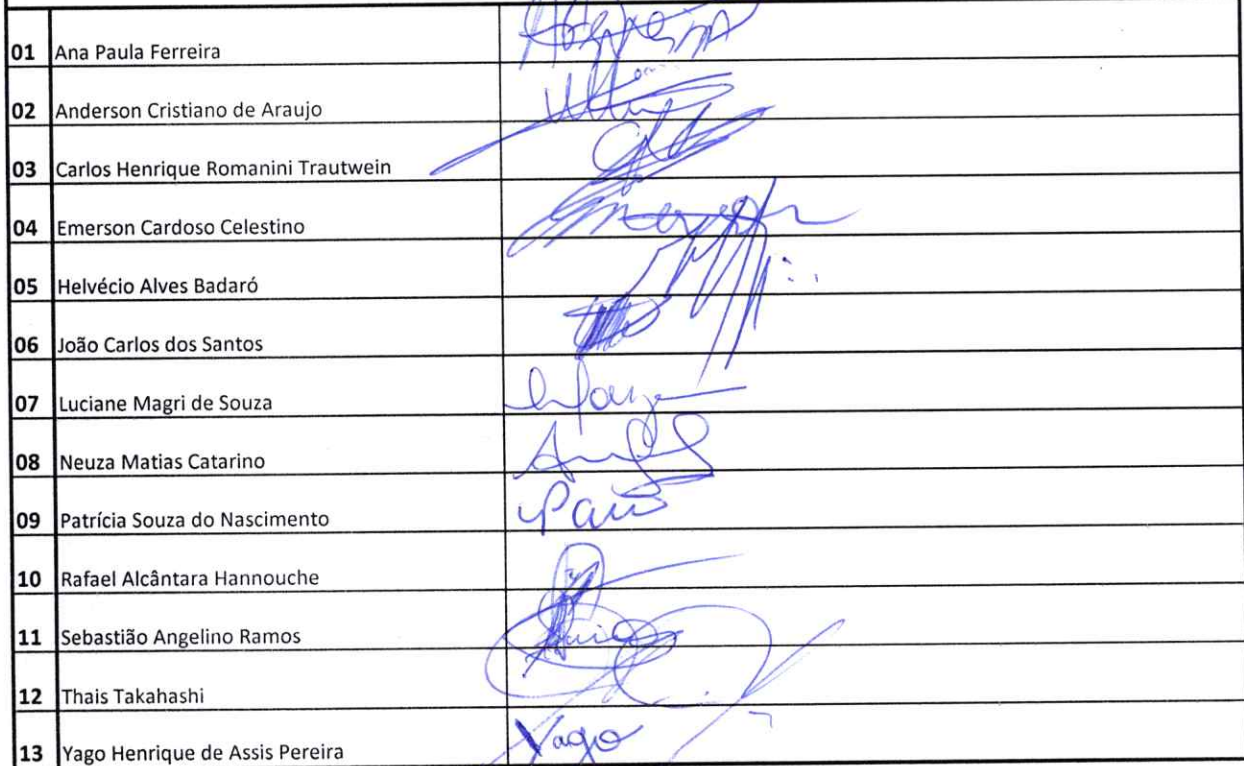 01 Ana Paula Ferreira
02 Anderson Cristiano de Araujo
03 Carlos Henrique Romanini Trautwein
04 Emerson Cardoso Celestino
05 Helvécio Alves Badaró
06 João Carlos dos Santos
07 Luciane Magri de Souza
08 Neuza Matias Catarino
09 Patrícia Souza do Nascimento
10 Rafael Alcântara Hannouche
11 Sebastião Angelino Ramos
12 Thais Takahashi
13 Yago Henrique de Assis Pereira Yago